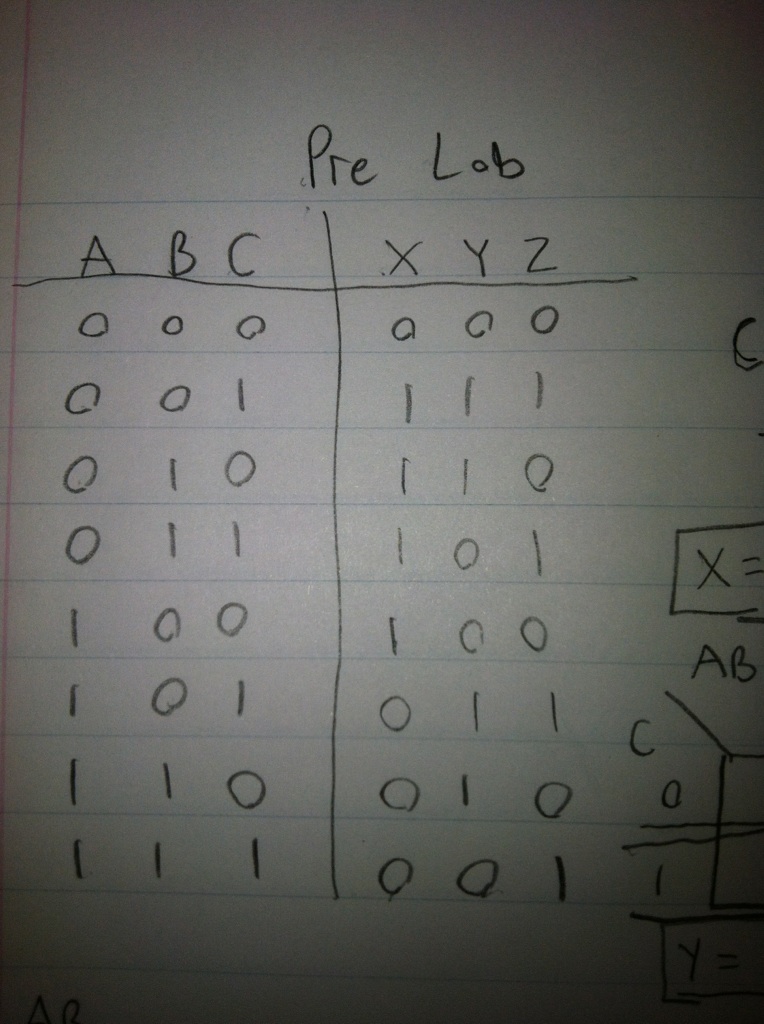 Pre Lab
A B C X Y Z
0 0 0 0 0 0
0 0 1 1 1 1
0 1 0 1 1 0
0 1 1 1 0 1
X =
1 0 0 1 0 0
AB
1 0 1 0 1 1
C
1 1 0 0 1 0
0
1 1 1 0 0 1
1
Y =
AB